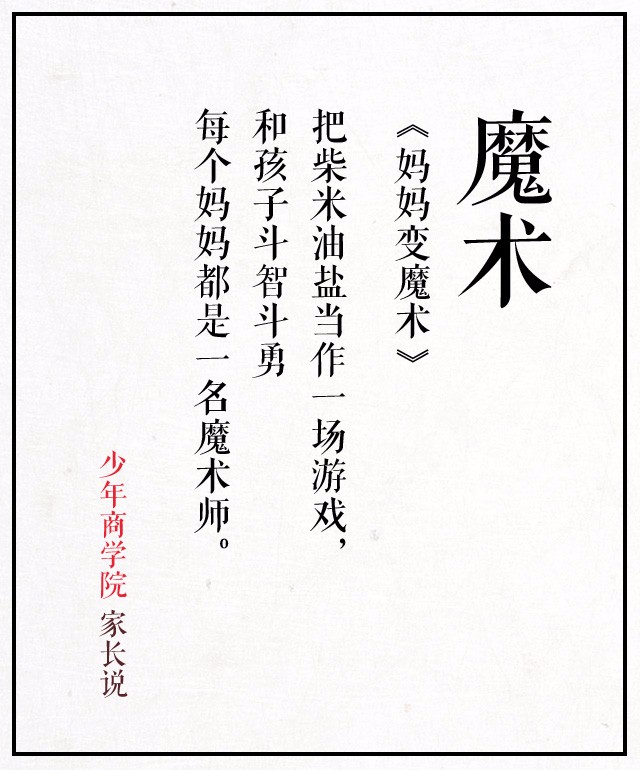 魔术
《妈妈变魔术》
把柴米油盐当作一场游戏，
和孩子斗智斗勇
每个妈妈都是一名魔术师。
少年商学院 家长说